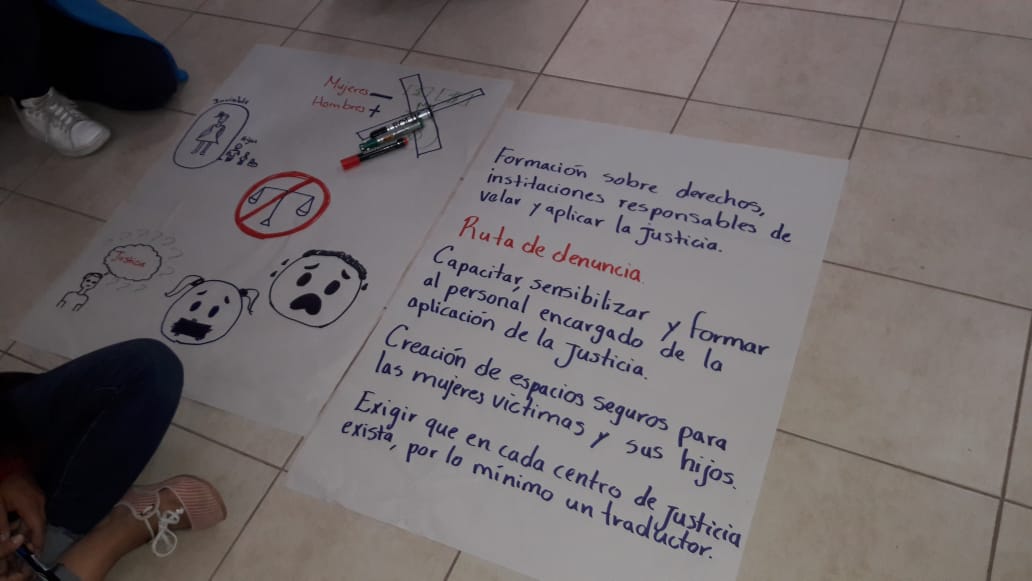 Mujeres -
Hombres +
Invisible
Justicia
? ? ? ? ? ?
Formación sobre derechos,
instituciones responsables de
velar y aplicar la justicia.
Ruta de denuncia.
Capacitar, sensibilizar y formar
al personal encargado de la
aplicación de la Justicia.
Creación de espacios seguros para
las mujeres víctimas y sus hijos.
Exigir que en cada centro de Justicia
exista, por lo mínimo un traductor.